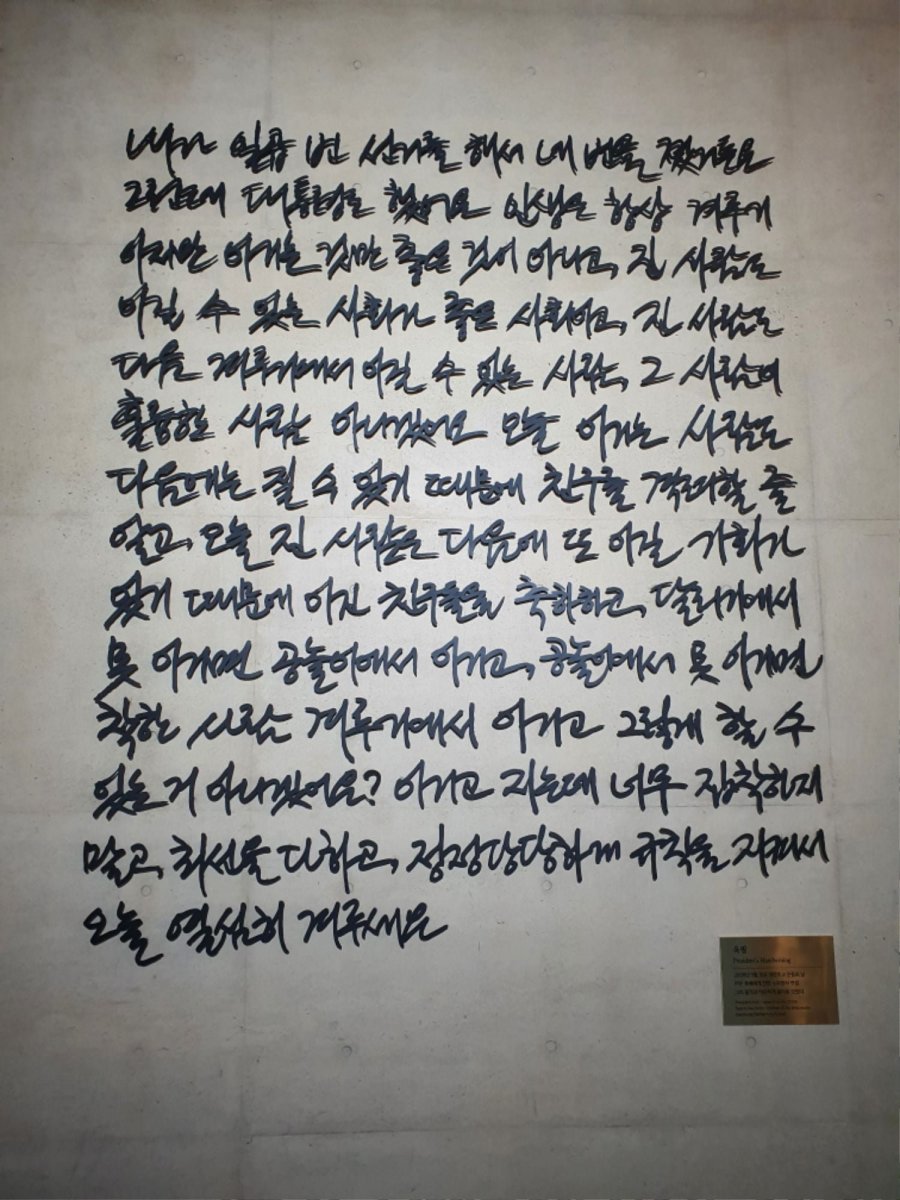 내가 일곱 번 선거를 해서 네 번을 졌거든요
그런데 대통령을 했어요 인생은 항상 겨루기
이지만 이기는 것만 좋은 것이 아니고, 진 사람도
이길 수 있는 사회가 좋은 사회이고, 진 사람도
다음 겨루기에서 이길 수 있는 사람, 그 사람이
훌륭한 사람 아니겠어요 오늘 이기는 사람도
다음에는 질 수 있기 때문에 친구를 격려할 줄
알고, 오늘 진 사람은 다음에 또 이길 기회가
있기 때문에 이긴 친구들을 축하하고, 달리기에서
못 이기면 공놀이에서 이기고, 공놀이에서 못 이기면
착한 사람 겨루기에서 이기고 그렇게 할 수
있는 거 아니겠어요? 이기고 지는데 너무 집착하지
말고, 최선을 다하고, 정정당당하게 규칙을 지켜서
오늘 열심히 겨루세요
President's Handwriting